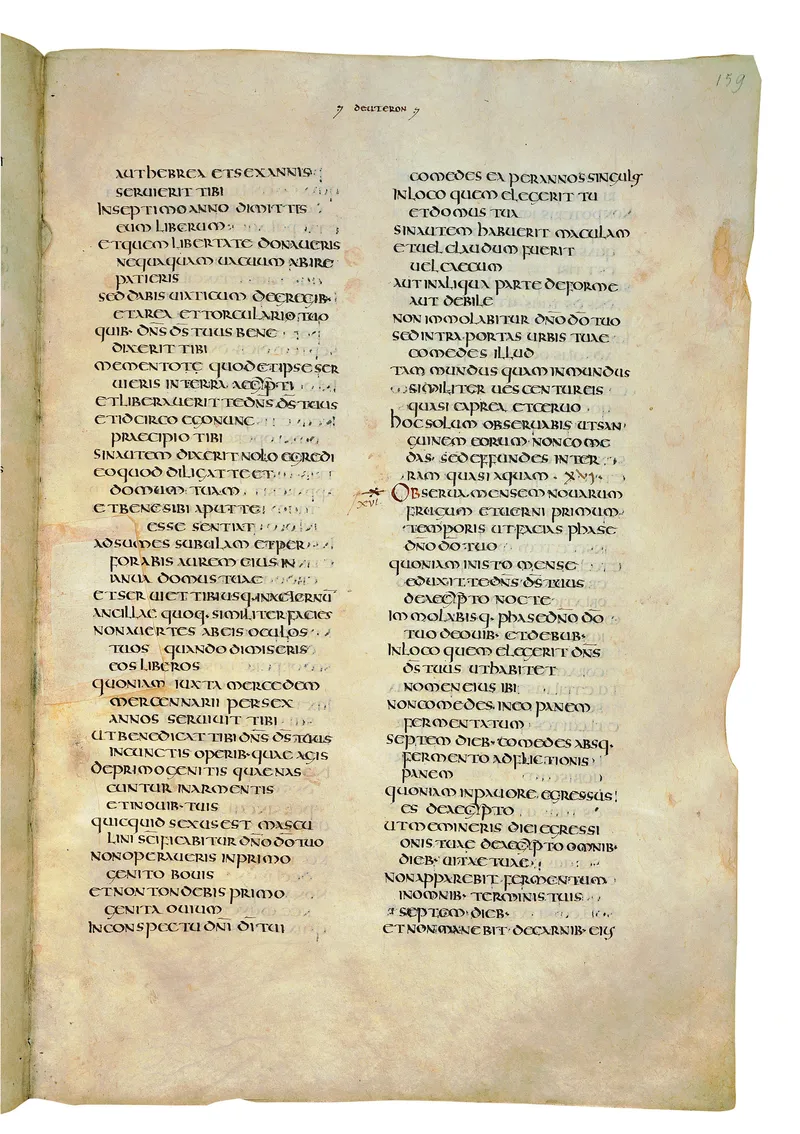 159
DEUTERON
AUT HEBREA ET SEX ANNIS
SERUIERIT TIBI
IN SEPTIMO ANNO DIMITTIS
EUM LIBERUM
ET QUEM LIBERTATE DONAUERIS
NEQUAQUAM UACUUM ABIRE
PATIERIS
SED DABIS UIATICUM DE GREGIB·
ET AREA ET TORCULARIO TUO
QUIB· DNS DS TUUS BENE
DIXERIT TIBI
MEMENTOTE QUOD ET IPSE SER
UIERIS IN TERRA AEGYPTI
ET LIBERAUERIT TE DNS DS TUUS
ET IDCIRCO EGO NUNC
PRAECIPIO TIBI
SIN AUTEM DIXERIT NOLO EGREDI
EO QUOD DILIGAT TE ET
DOMUM TUAM
ET BENE SIBI APUT TE
ESSE SENTIAT
ADSUMES SUBULAM ET PER
FORABIS AUREM EIUS IN
IANUA DOMUS TUAE
ET SERUIET TIBI USQ· IN AETERNŪ
ANCILLAE QUOQ· SIMILITER FACIES
NON AUERTES AB EIS OCULOS
TUOS QUANDO DIMISERIS
EOS LIBEROS
QUONIAM IUXTA MERCEDEM
MERCENNARII PER SEX
ANNOS SERUIUIT TIBI
UT BENEDICAT TIBI DNS DS TUUS
IN CUNCTIS OPERIB· QUAE AGIS
DE PRIMOGENITIS QUAE NAS
CUNTUR IN ARMENTIS
ET IN OUIB· TUIS
QUICQUID SEXUS EST MASCU
LINI SCIFICABITUR DNO DO TUO
NON OPERAUERIS IN PRIMO
GENITO BOUIS
ET NON TONDEBIS PRIMO
GENITA OUIUM
IN CONSPECTU DNI DI TUI
COMEDES EA PER ANNOS SINGULOS
IN LOCO QUEM ELEGERIT TU
ET DOMUS TUA
SIN AUTEM HABUERIT MACULAM
ET UEL CLAUDUM FUERIT
UEL CAECUM
AUT IN ALIQUA PARTE DEFORME
AUT DEBILE
NON IMMOLABITUR DNO DO TUO
SED INTRA PORTAS URBIS TUAE
COMEDES ILLUD
TAM MUNDUS QUAM INMUNDUS
SIMILITER UESCENTUR EIS
QUASI CAPREA ET CERUO
HOC SOLUM OBSERUABIS UT SAN
GUINEM EORUM NON COME
DAS· SED EFFUNDES IN TER
RAM QUASI AQUAM · XXI·
XVI OBSERUA MENSEM NOUARUM
FRUGUM ET UERNI PRIMUM
TEMPORIS UT FACIAS PHASE
DNO DO TUO
QUONIAM IN ISTO MENSE
EDUXIT TE DNS DS TUUS
DE AEGYPTO NOCTE
IMMOLABISQ· PHASE DNO DO
TUO DE OUIB· ET DE BUB·
IN LOCO QUEM ELEGERIT DNS
DS TUUS UT HABITET
NOMEN EIUS IBI
NON COMEDES IN EO PANEM
FERMENTATUM
SEPTEM DIEB· COMEDES ABSQ·
FERMENTO ADFLICTIONIS
PANEM
QUONIAM IN PAUORE EGRESSUS
ES DE AEGYPTO
UT MEMINERIS DIEI EGRESSI
ONIS TUAE DE AEGYPTO OMNIB·
DIEB· UITAE TUAE
NON APPAREBIT FERMENTUM
IN OMNIB· TERMINIS TUIS
SEPTEM DIEB·
ET NON MANEBIT DE CARNIB· EIUS